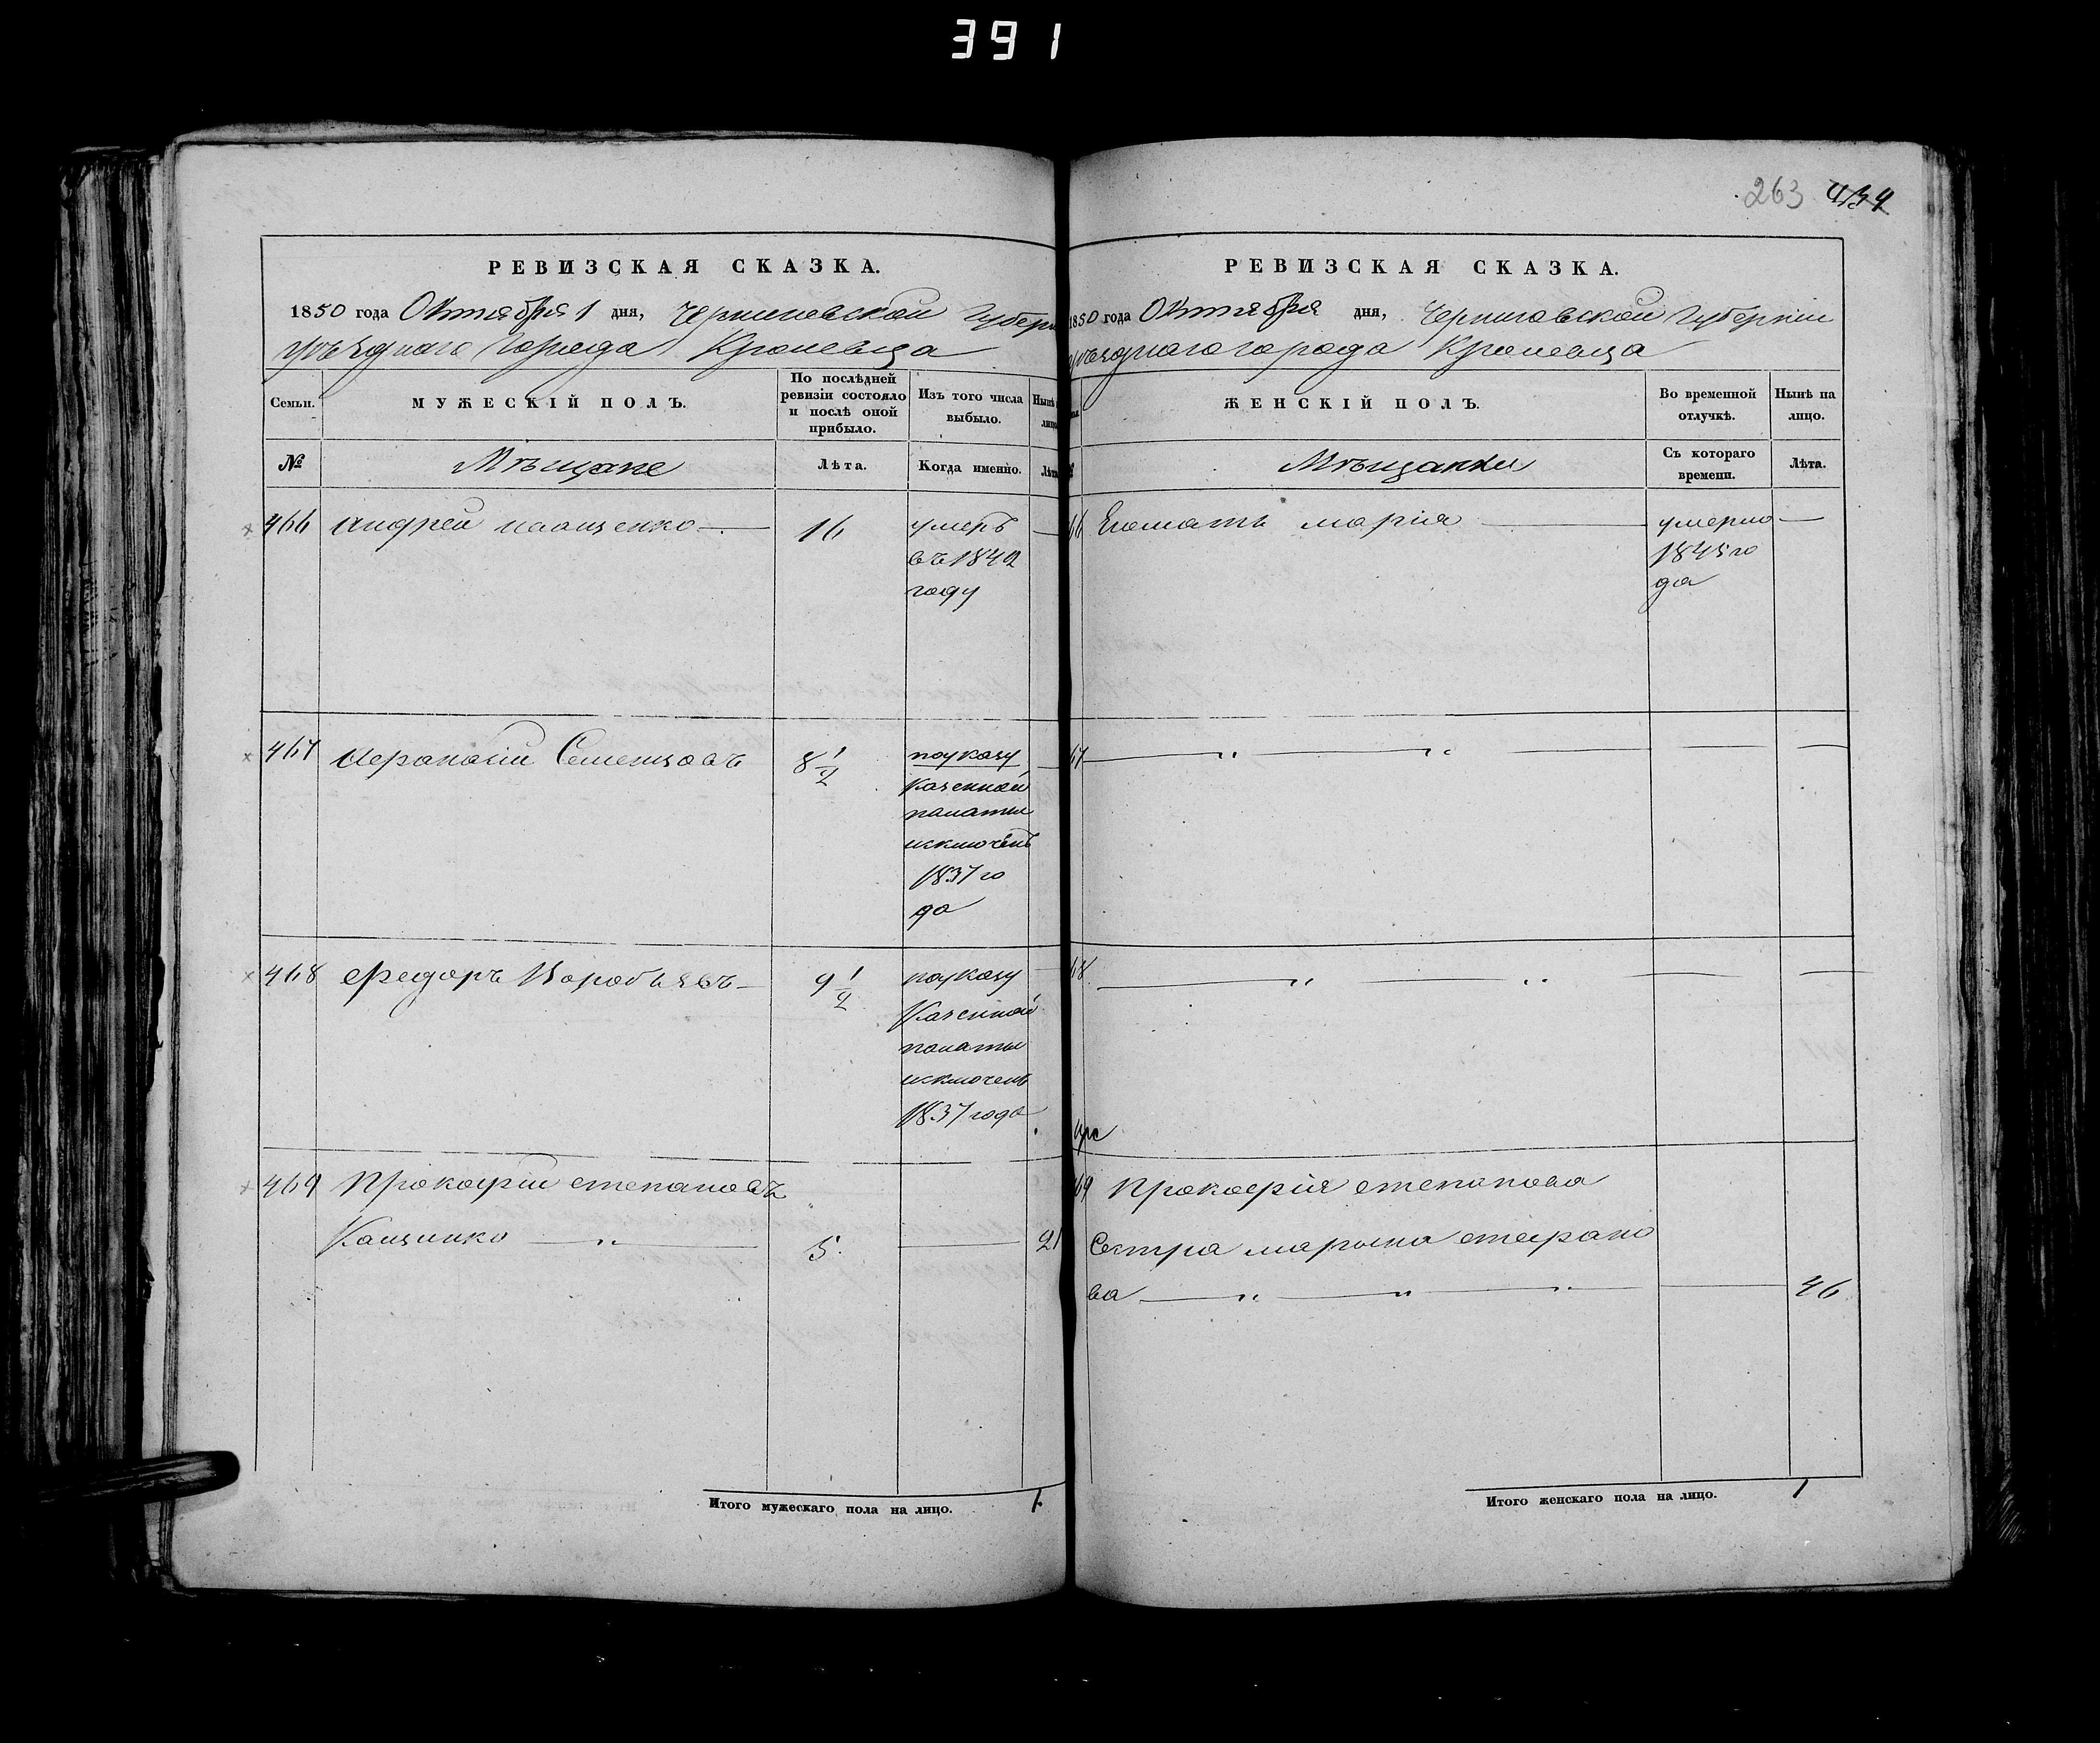 391
263 434
РЕВИЗСКАЯ СКАЗКА.
1850 года Октября 1 дня, Черниговской Губерн
уѣзднаго города Кролевца
Семьи.
МУЖЕСКІЙ ПОЛЪ.
По послѣдней
ревизіи состояло
и послѣ оной
прибыло.
Изъ того числа
выбыло.
Нынѣ
лицо
№
Мѣщане
Лѣта.
Когда именно.
Лѣта
466 Андрей 16 умеръ
въ 1842
году
467 Семенцовъ 8 1/2 по указу
Казенной
палаты
исключенъ
1837 го
да
468 Федоръ Воробьевъ 9 1/2 по указу
Казенной
палаты
исключенъ
1837 года
469 Прокофій степановъ
Кащенко 5 21
Итого мужескаго пола на лицо. 1
РЕВИЗСКАЯ СКАЗКА.
1850 года Октября дня, Черниговской Губерніи
уѣзднаго города Кролевца
ЖЕНСКІЙ ПОЛЪ.
Во временной
отлучкѣ.
Нынѣ на
лицо.
Мѣщанки
Съ котораго
времени.
Лѣта.
66 Егомать марія умерла
1845 го
да
67
68
69 Прокофія степанова
Сестра марьяна
ва 46
Итого женскаго пола на лицо. 1